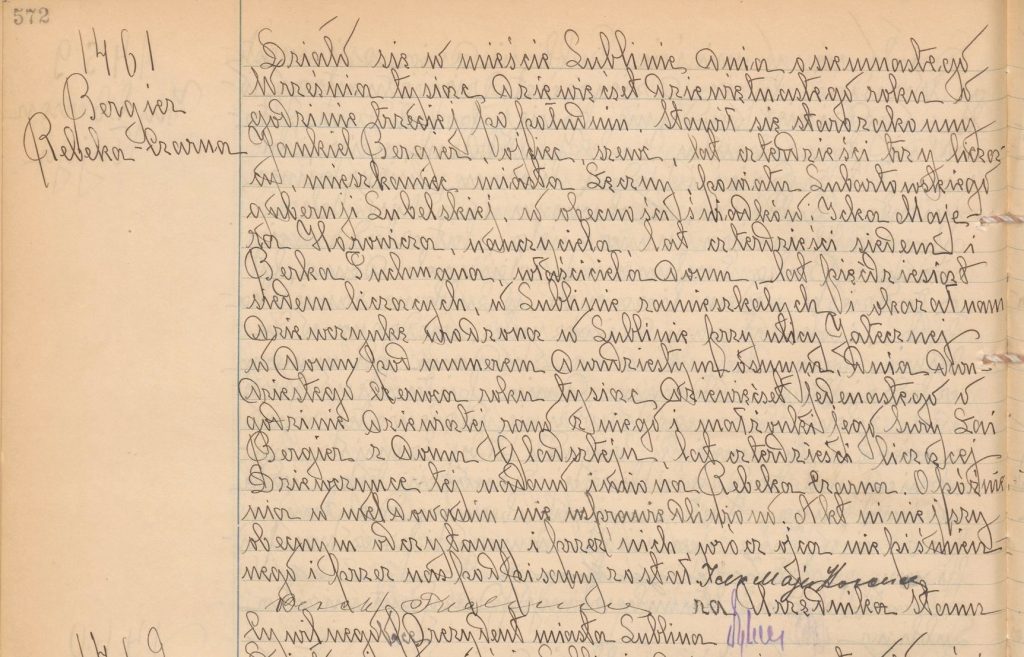 572
1461
Bergier
Rebeka-Czarna
Działo się w mieście Lublinie dnia osiemnastego
Września tysiąc dziewięćset dziewiętnastego roku o
godzinie trzeciej po południu. Stawił się starozakonny
Jankiel Bergier, ojciec, szewc, lat czterdzieści trzy liczą-
cy, mieszkaniec miasta Łęczny, powiatu Lubartowskiego
gubernji Lubelskiej, w obecności świadków: Icka Maje-
ra Horowicza, nauczyciela, lat czterdzieści siedem i
Berka Tuchmana, właściciela domu, lat pięćdziesiąt
siedem liczących, w Lublinie zamieszkałych i okazał nam
dziewczynkę urodzoną w Lublinie przy ulicy Jatecznej
w domu pod numerem dwudziestym ósmym, dnia dwu-
dziestego Czerwca roku tysiąc dziewięćset jedenastego o
godzinie dziewiątej rano z niego i małżonki jego Sury Łai
Bergier z domu Gladsztejn, lat czterdzieści liczącej
Dziewczynce tej nadano imiona Rebeka Czarna. Opóźnie-
nia w meldowaniu nie usprawiedliwiono. Akt niniejszy
obecnym odczytany i przez nich, prócz ojca niepiśmien-
nego i przez nas podpisany został. Icek Majer Horowicz
za Urzędnika Stanu
Cywilnego Prezydent miasta Lublina
1462